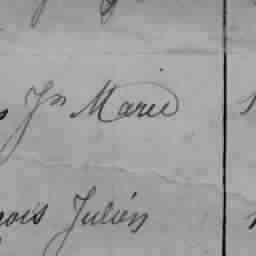 Jn Marie
çois Julien